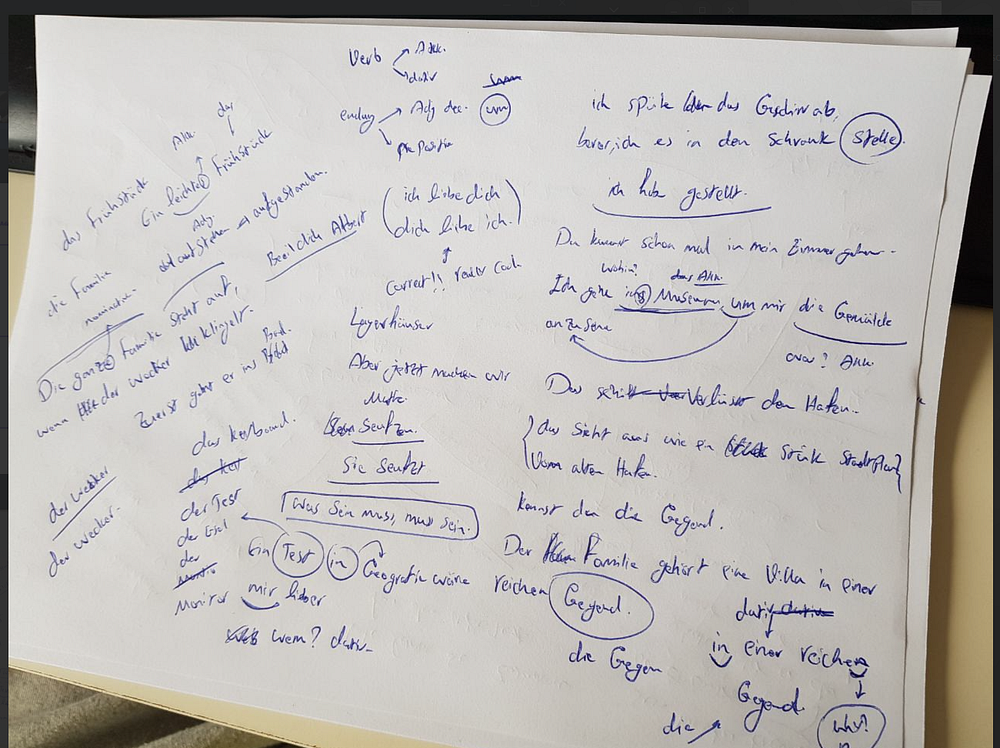 Verb
Akk.
dativ
endung
Adj dec.
um
Preposition
das Frühstück
Akk.
das
Ein leichtes Frühstück
Adj.
aufstehen → aufgestanden.
Beeil dich Albert
die Familie
nominativ.
Die ganze Familie steht auf,
wenn der wecker klingelt.
Zuerst geht er ins Bad.
der wecker
der wecker.
das keyboard.
der Test
der
Monitor
(ich liebe dich
dich liebe ich.)
correct!!
Lagerhäuser
Aber jetzt machen wir
Mathe.
Seufzen.
Sie Seufzt
Was Sein muss, muss sein.
Ein Test in Geografie wäre
mir lieber
wem? dativ
ich spüle das Geschirr ab,
bevor, ich es in den Schrank stelle.
ich habe gestellt.
Du kannst schon mal in mein Zimmer gehen.
wohin? das Akk.
Ich gehe ins Museum, um mir die Gemälde
Akk.
Das Verlässt den Hafen.
das Sieht aus wie ein Stück Stadtplan
Vom alten Hafen.
kennst den die Gegend.
Der Familie gehört eine Villa in einer
reichen Gegend.
dativ
in einer reichen
Gegend
die Gegen
die
why?